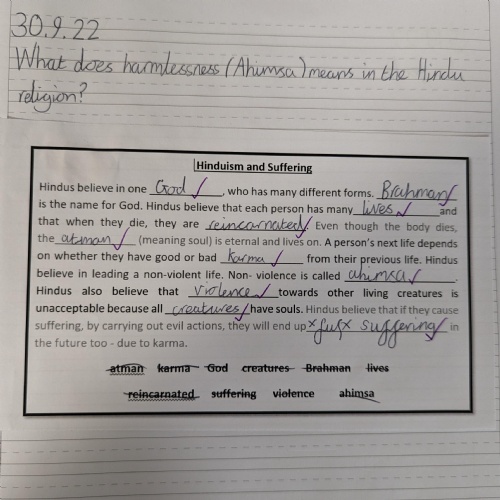 30.9.22
What does harmlessness (Ahimsa) means in the Hindu
religion?
Hinduism and Suffering
Hindus believe in one God, who has many different forms. Brahman
is the name for God. Hindus believe that each person has many lives and
that when they die, they are reincarnated. Even though the body dies,
the atman (meaning soul) is eternal and lives on. A person's next life depends
on whether they have good or bad karma from their previous life. Hindus
believe in leading a non-violent life. Non- violence is called ahimsa.
Hindus also believe that violence towards other living creatures is
unacceptable because all creatures have souls. Hindus believe that if they cause
suffering, by carrying out evil actions, they will end up suffering in
the future too - due to karma.
atman karma God creatures Brahman lives
reincarnated suffering violence ahimsa